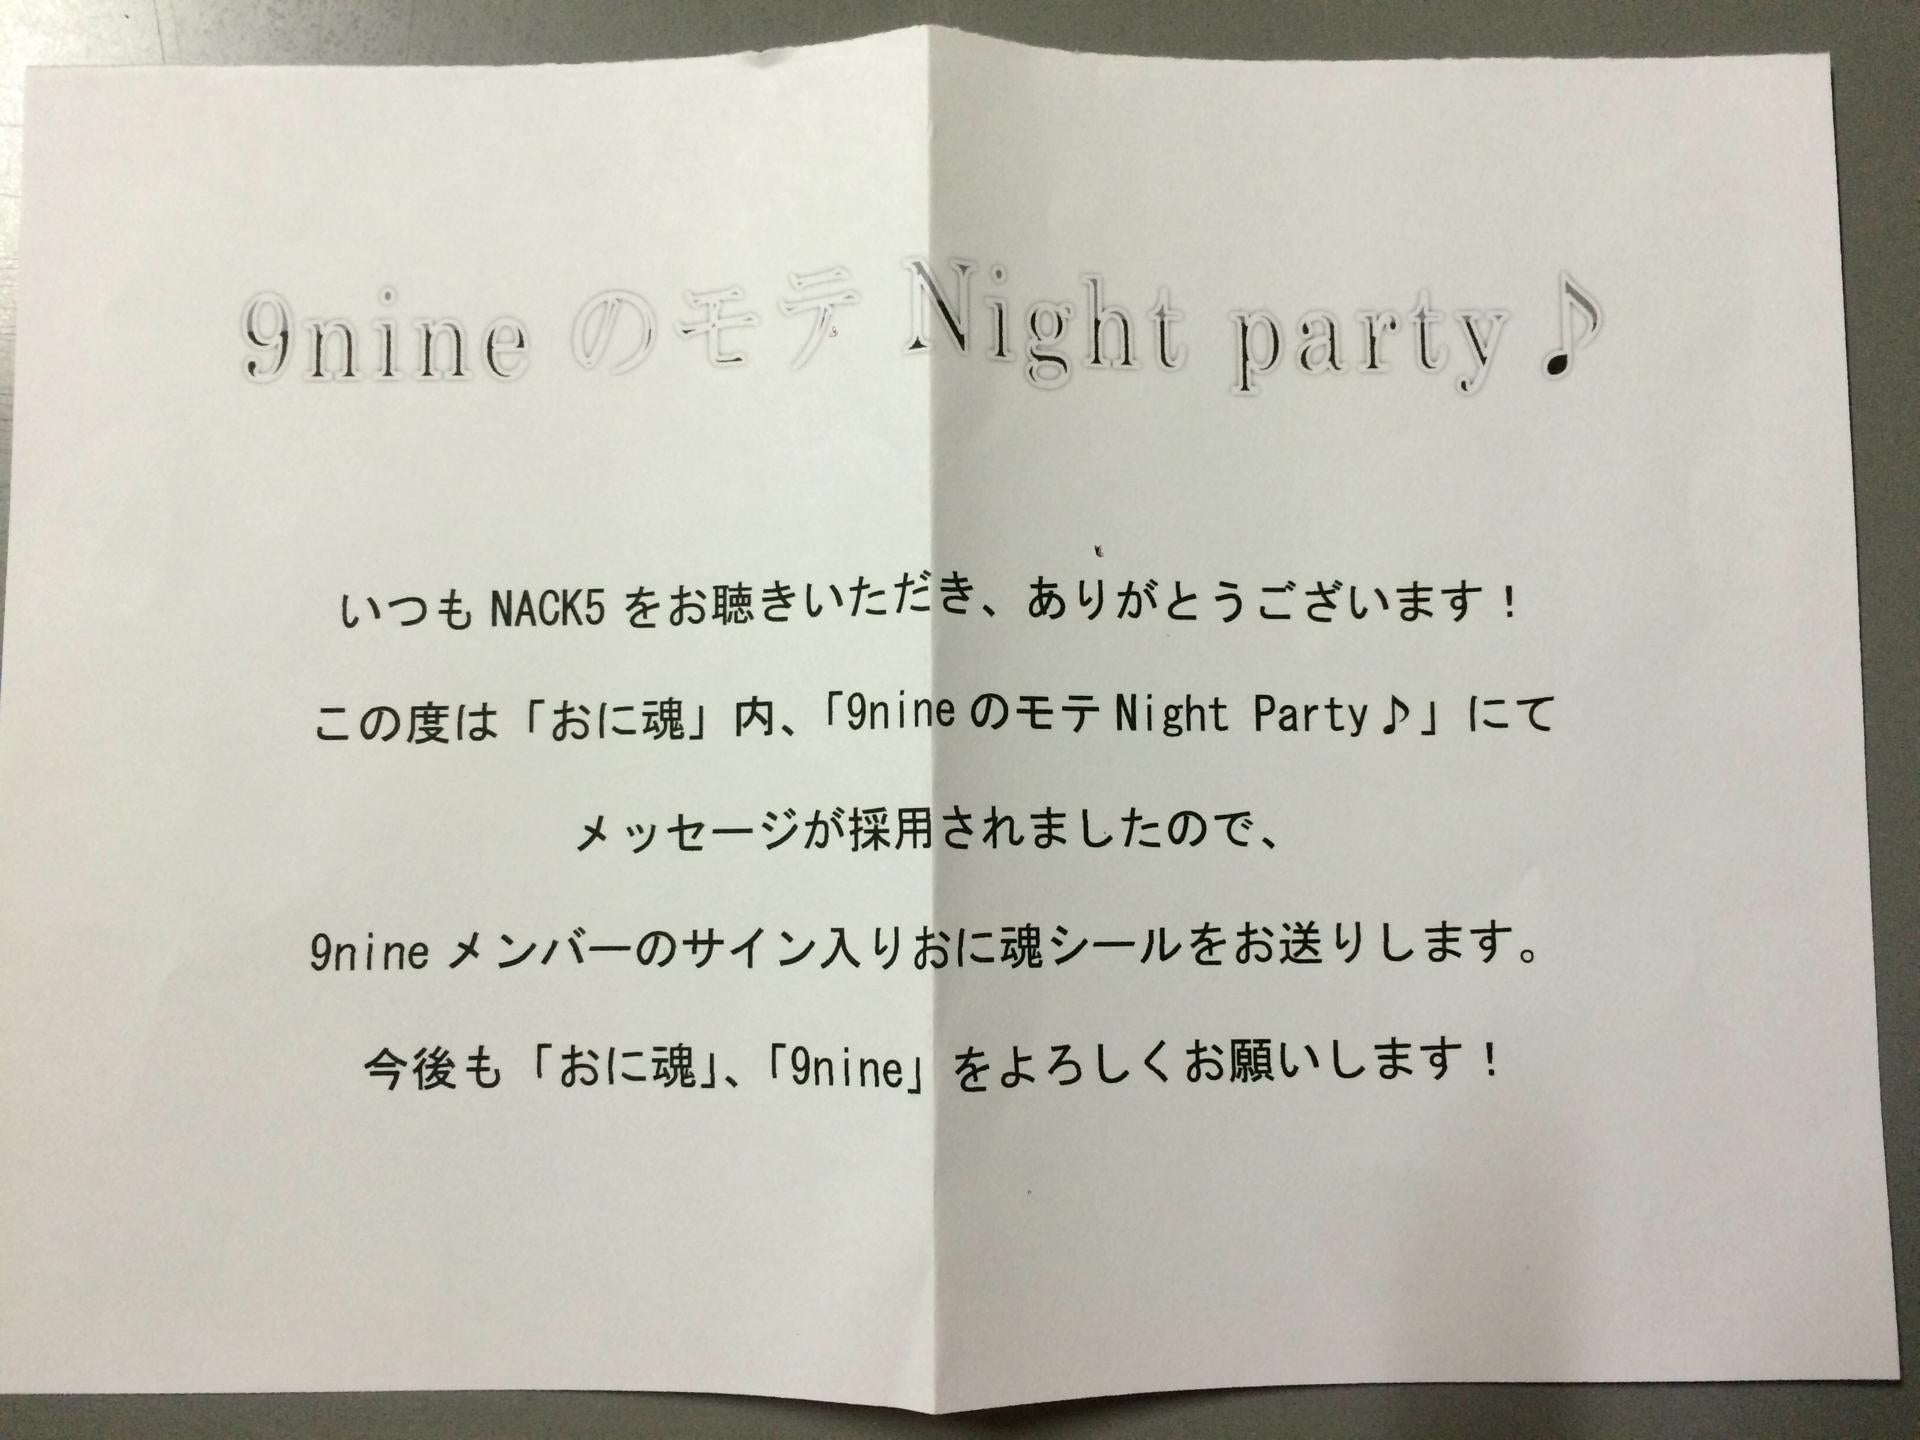 9nineのモテNight party♪
いつもNACK5をお聴きいただき、ありがとうございます！
この度は「おに魂」内、「9nineのモテNight Party♪」にて
メッセージが採用されましたので、
9nineメンバーのサイン入りおに魂シールをお送りします。
今後も「おに魂」、「9nine」をよろしくお願いします！